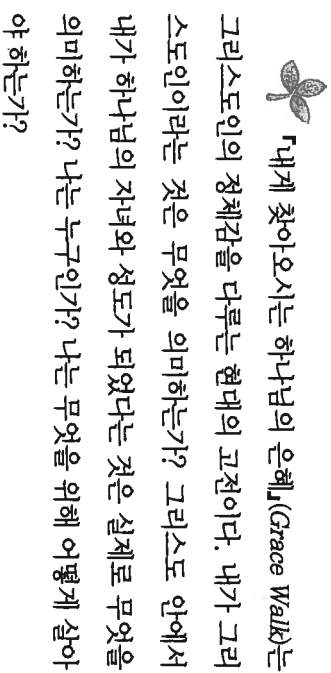 『내게 찾아오시는 하나님의 은혜』(Grace Walk)는
그리스도인의 정체감을 다루는 현대의 고전이다. 내가 그리
스도인이라는 것은 무엇을 의미하는가? 그리스도 안에서
내가 하나님의 자녀와 성도가 되었다는 것은 실제로 무엇을
의미하는가? 나는 누구인가? 나는 무엇을 위해 어떻게 살아
야 하는가?